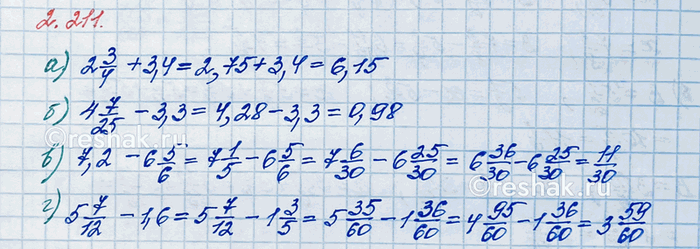 2.211.
а) 2 3/4 + 3,4 = 2,75 + 3,4 = 6,15
б) 4 7/25 - 3,3 = 4,28 - 3,3 = 0,98
в) 7,2 - 6 5/6 = 7 1/5 - 6 5/6 = 7 6/30 - 6 25/30 = 6 36/30 - 6 25/30 = 11/30
г) 5 7/12 - 1,6 = 5 7/12 - 1 3/5 = 5 35/60 - 1 36/60 = 4 95/60 - 1 36/60 = 3 59/60
©reshak.ru
©reshak.ru